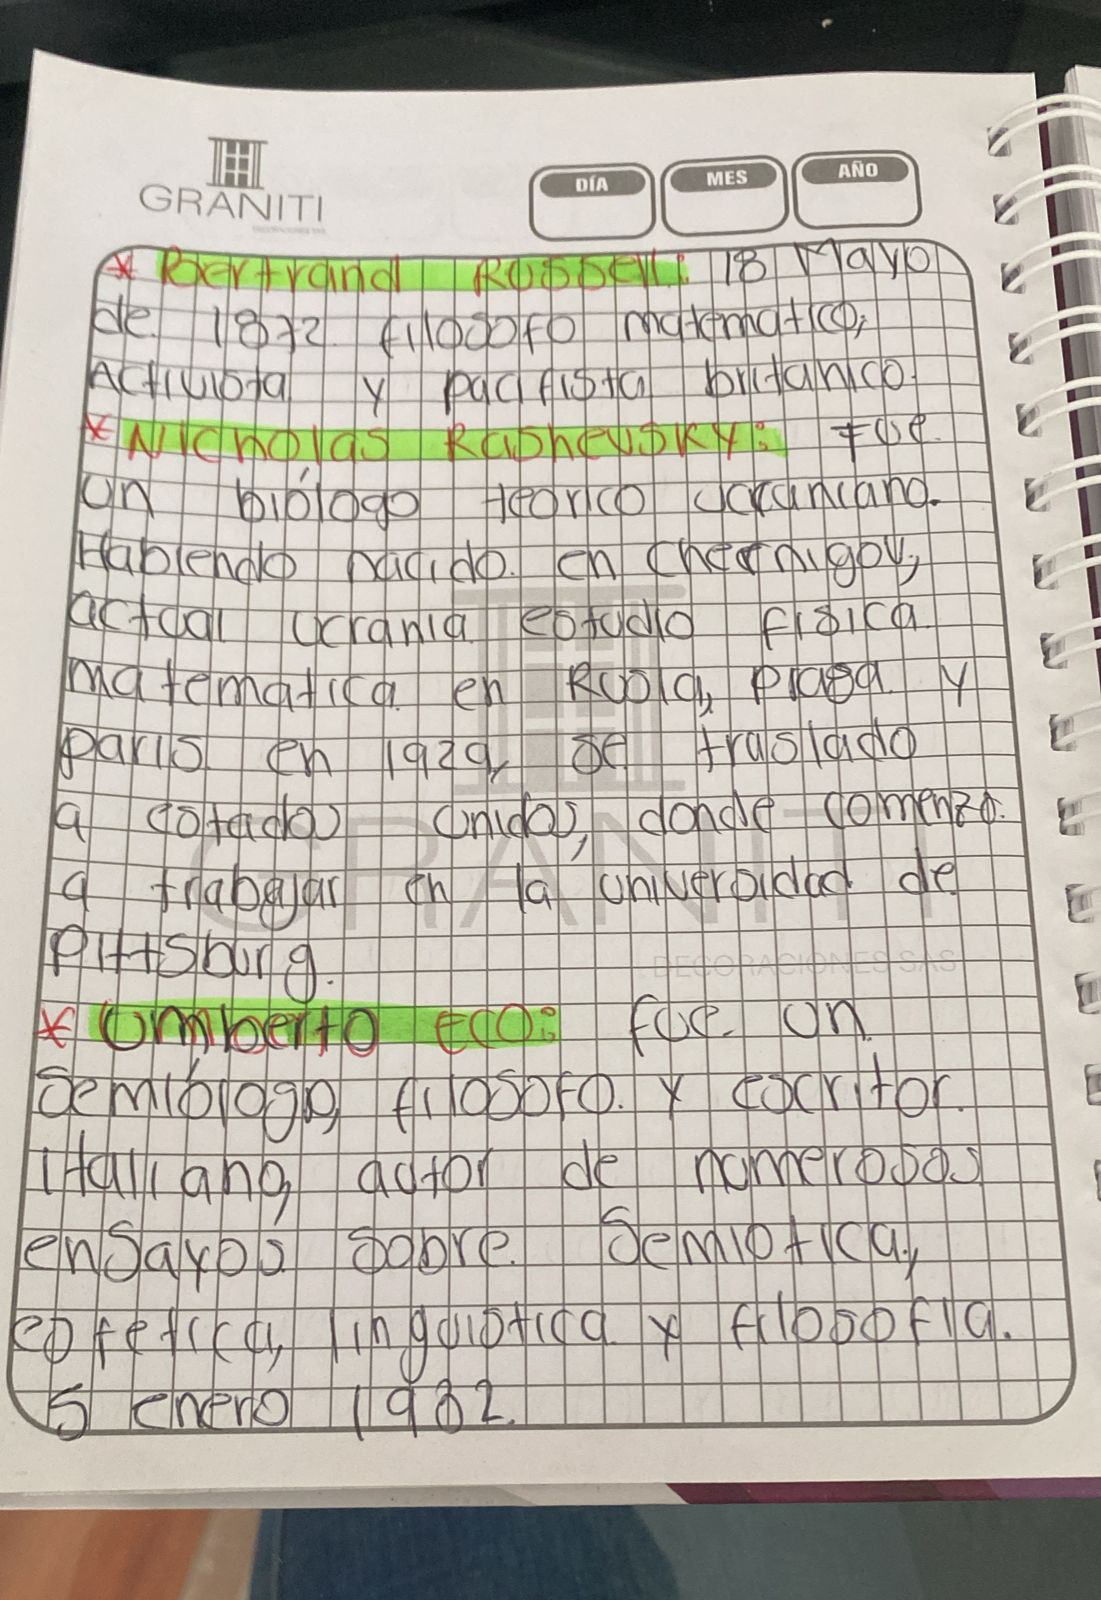 GRANITI
DÍA MES AÑO
* Bertrand Russell: 18 Mayo
de 1872 filosofo matematico,
Activista y pacifista britanico.
* Nicholas Rashevsky: Fue
un biólogo teorico ucraniano.
Habiendo nacido en Chernigov,
actual ucrania estudio fisica
matematica en Rusia, praga y
paris en 1929, se traslado
a estados unidos, donde comenzo
a trabajar en la universidad de
Pittsburg.
GRANITI
DECORACIONES SAS
* Umberto eco: fue un
Semiólogo, filosofo y escritor
italiano, autor de numerosos
ensayos sobre Semiotica,
estetica, linguistica y filosofia.
5 enero 1932